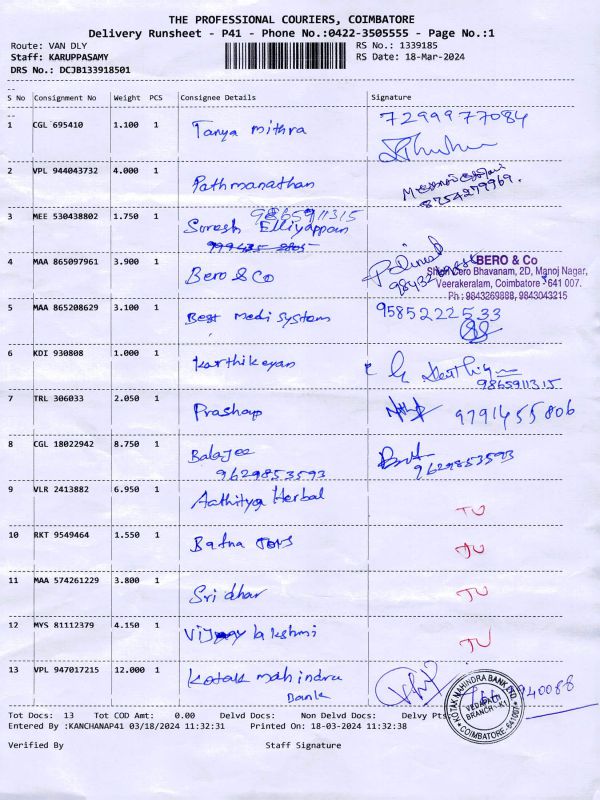 THE PROFESSIONAL COURIERS, COIMBATORE
Delivery Runsheet - P41 - Phone No.:0422-3505555 - Page No.:1
Route: VAN DLY RS No.: 1339185
Staff: KARUPPASAMY RS Date: 18-Mar-2024
DRS No.: DCJB133918501
S No Consignment No Weight PCS Consignee Details Signature
1 CGL 695410 1.100 1 Tanya mithra 7299977084
2 VPL 944043732 4.000 1 Pathmanathan 8754279969.
3 MEE 530438802 1.750 1 9865911315
Suresh Elliyappan
4 MAA 865097961 3.900 1 Bero & Co
BERO & Co
Bhavanam, 2D, Manoj Nagar,
Veerakeralam, Coimbatore 641 007.
Ph : 9843269888, 9843043215
5 MAA 865208629 3.100 1 Best medi system 9585222533
6 KDI 930808 1.000 1 karthikeyan
9865911315
7 TRL 306033 2.050 1 Prashap 9791455806
8 CGL 18022942 8.750 1 Balajee
9629853593 9629853593
9 VLR 2413882 6.950 1 Aathitya Herbal TU
10 RKT 9549464 1.550 1 Batna TU
11 MAA 574261229 3.800 1 Sridhar TU
12 MYS 81112379 4.150 1 Vijay lakshmi TU
13 VPL 947017215 12.000 1 Kotak mahindra
Bank
KOTAK MAHINDRA BANK LTD.
VEDAPATTI
BRANCH-K1
COIMBATORE-641007
940088
Tot Docs: 13 Tot COD Amt: 0.00 Delvd Docs: Non Delvd Docs: Delvy Pts
Entered By :KANCHANAP41 03/18/2024 11:32:31 Printed On: 18-03-2024 11:32:38
Verified By Staff Signature